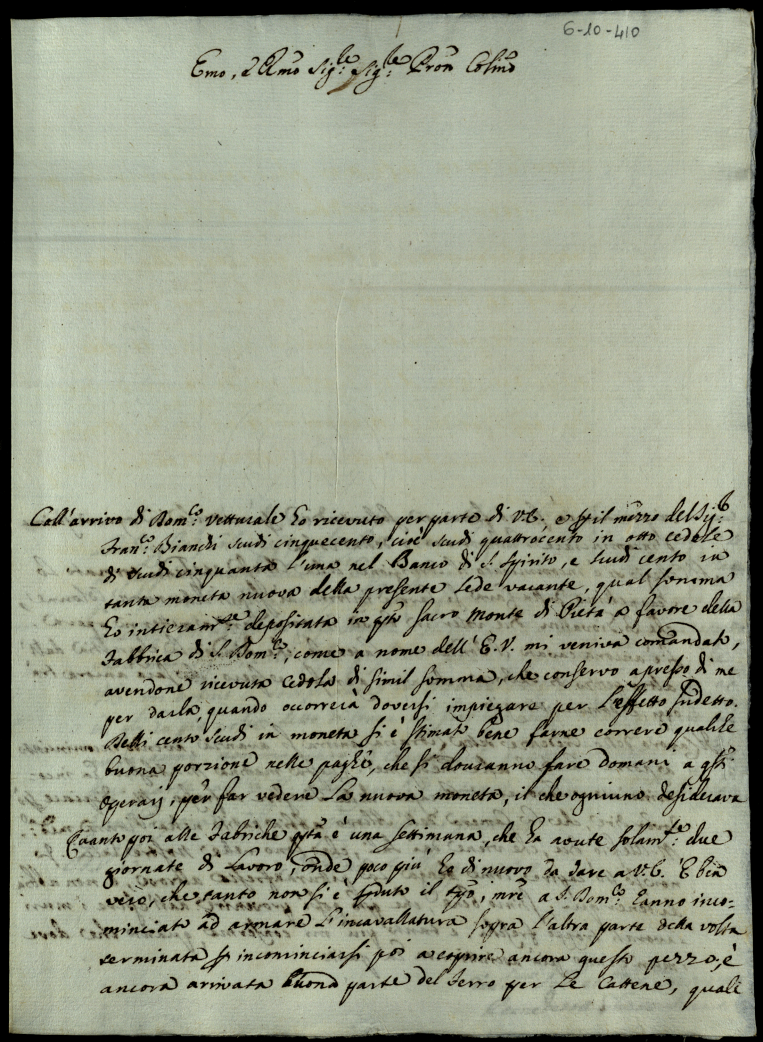 6-10-410
Emo, e Rmo Sig:re Sig:re Pron Colmo
Coll'arrivo di Dom:co vetturale ho ricevuto per parte di V.E., e p il mezzo del Sig:r
Fran:co Bianchi scudi cinquecento, cioè scudi quattrocento in otto cedole
di scudi cinquanta l'una nel Banco di S. Spirito, e scudi cento in
tanta moneta nuova della presente sede vacante, qual somma
ho intieram:te depositata in qto sacro Monte di Pietà a favore della
Fabbrica di S. Dom:co, come a nome dell'E.V. mi veniva comandato,
avendone ricevuta cedola di simil somma, che conservo apresso di me
per darla, quando occorrerà doversi impiegare per l'effetto sudetto.
Delli cento scudi in moneta si è stimato bene farne correre qualche
buona porzione nelle paghe, che si dovranno fare domani a qsti
Operaij, per far vedere la nuova moneta, il che ogniuno desiderava
Quanto poi alle Fabriche qsta è una settimana, che ha avute solam:te due
giornate di lavoro, onde poco più ho di nuovo da dare a V.E. È ben
vero, che tanto non si è pduto il tpo, mre a S. Dom:co hanno inco-
minciato ad armare l'incavallatura sopra l'altra parte della volta
terminata p incominciarsi poi a coprire ancora questo pezzo, è
ancora arrivata buona parte del ferro per le Cattene, quale